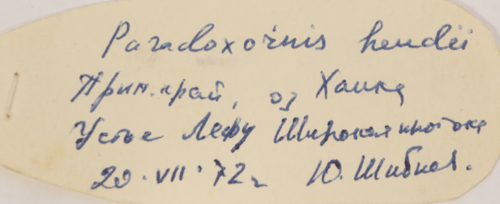 Paradoxornis heudei
Прим. край, оз Ханка
Устье Лефу Широкая протока
20·VII·72г Ю. Шибнев.